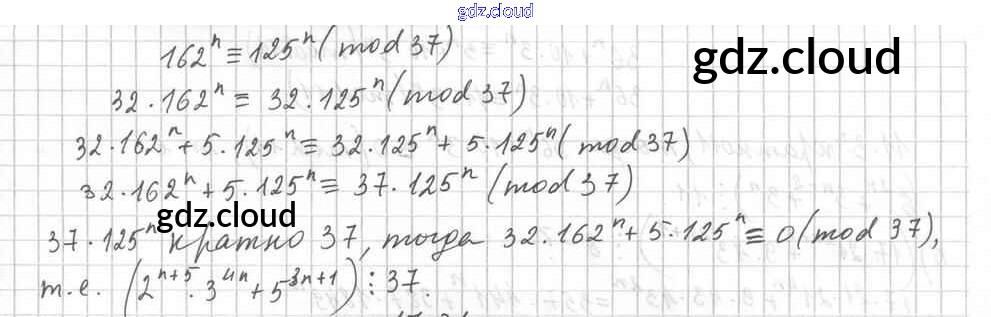 gdz.cloud
162ⁿ ≡ 125ⁿ (mod 37)
gdz.cloud
32 · 162ⁿ ≡ 32 · 125ⁿ (mod 37)
32 · 162ⁿ + 5 · 125ⁿ ≡ 32 · 125ⁿ + 5 · 125ⁿ (mod 37)
32 · 162ⁿ + 5 · 125ⁿ ≡ 37 · 125ⁿ (mod 37)
gdz.cloud
37 · 125ⁿ кратно 37, тогда 32 · 162ⁿ + 5 · 125ⁿ ≡ 0 (mod 37),
т.е. (2ⁿ⁺⁵ · 3⁴ⁿ + 5³ⁿ⁺¹) ⋮ 37.